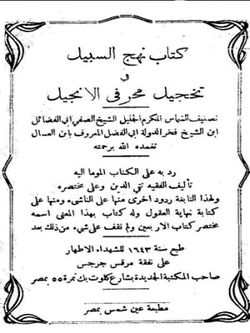 كتاب نهج السبيل
و
تخجيل محرفي الانجيل
تصنيف الشماس المكرم الجليل الشيخ الصفي ابي الفضائل
ابن الشيخ فخر الدولة ابي الفضل المعروف بابن العسال
تغمده الله برحمته
رد به على الكتاب الموما اليه
تأليف الفقيه تقي الدين وعلى مختصره
ولهذا النابغة ردود اخرى منها على الناشىء ومنها على
كتابة نهاية العقول وله كتاب بهذا المعنى اسمه
مختصر كتاب الاربعين ولم نقف على شيء من ذلك بعد
طبع سنة ١٦٤٣ للشهداء الاطهار
على نفقة مرقس جرجس
صاحب المكتبة الجديدة بشارع كلوت بك نمرة ٥٥ بمصر
مطبعة عين شمس بمصر